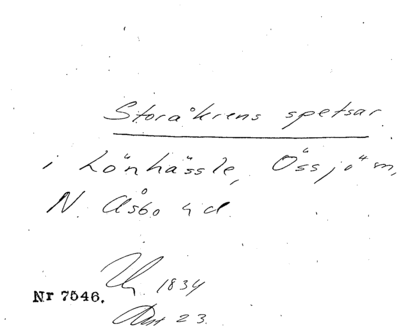 Storåkrens spetsar
i Lönhässle, Össjö m,
N. Åsbo hd.
1834
Nr 7546.
23.